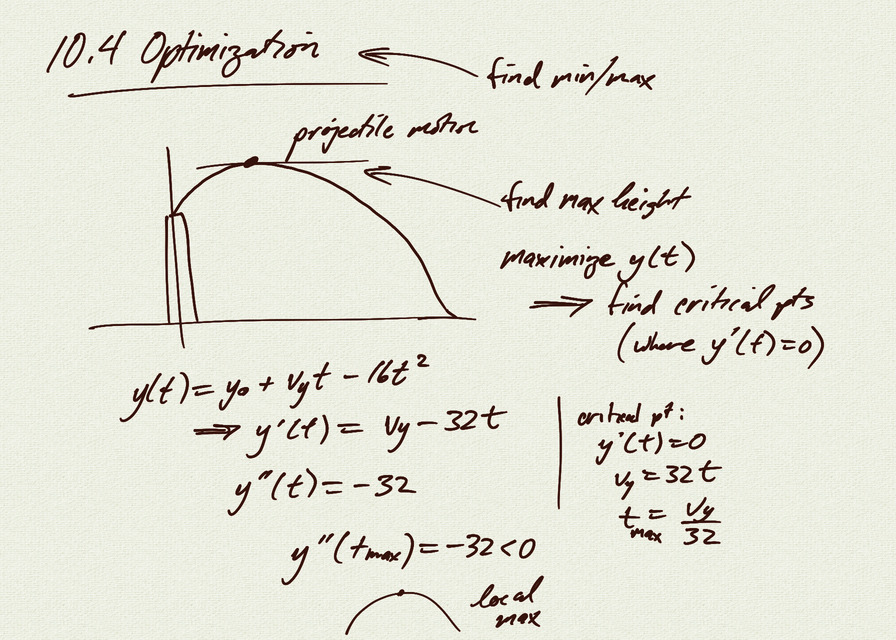 10.4 Optimization
find min/max
projectile motion
find max height
maximize y(t)
⇒ find critical pts
(where y'(t)=0)
y(t)= y₀ + vyt − 16t²
⇒ y'(t) = vy − 32t
y''(t) = −32
y''(tmax) = −32 < 0
local
max
critical pt:
y'(t)=0
vy = 32t
tmax = vy/32